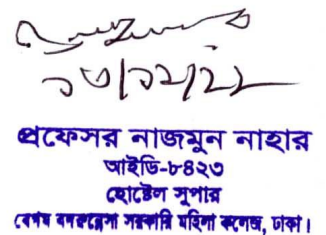 প্রফেসর নাজমুন নাহার
আইডি-৮৪২৩
হোষ্টেল সুপার
বেগম বদরুন্নেসা সরকারি মহিলা কলেজ, ঢাকা।